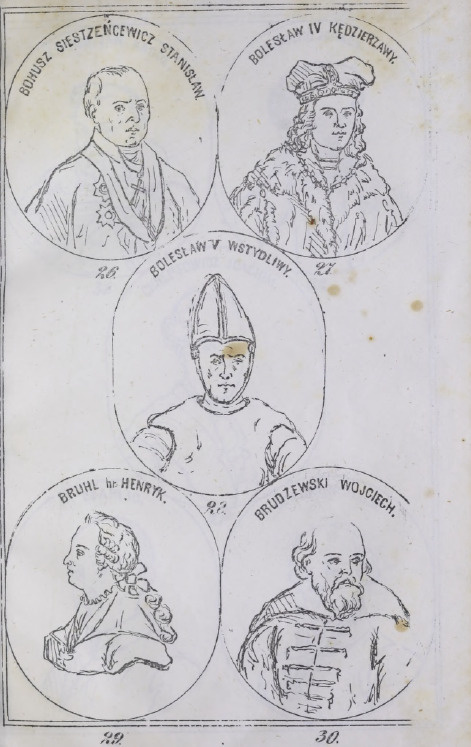 BOHUSZ SIESTZEŃCEWICZ STANISŁAW.
BOLESŁAW IV KĘDZIERZAWY.
26.
27.
BOLESŁAW V WSTYDLIWY.
28.
BRUHL hr. HENRYK.
BRUDZEWSKI WOJCIECH.
29.
30.